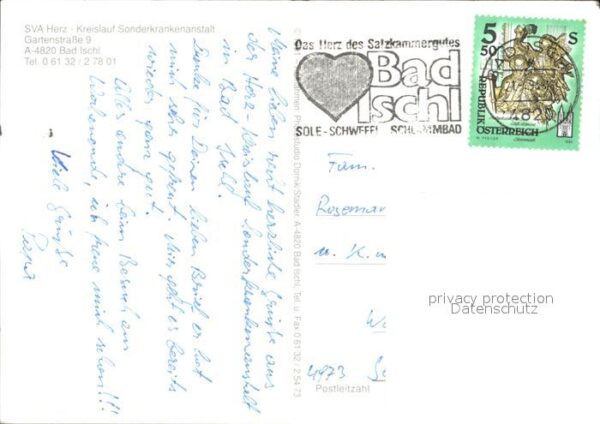 SVA Herz - Kreislauf Sonderkrankenanstalt
Gartenstraße 9
A-4820 Bad Ischl
Tel. 0 61 32 / 2 78 01
Meine lieben heut herzliche Grüße aus
der Herz-Kreislauf Sonderkrankenanstalt
in Bad Ischl.
Danke für Deinen lieben Brief er hat
mich sehr gefreut. Mir geht es bereits
wieder ganz gut.
Alles andere beim Besuch am
Wochenend, ich freue mich schon!!!
Viele Grüße
Photostudio Domik Stadler A-4820 Bad Ischl, Tel. u. Fax 0 61 32 / 2 54 73
Das Herz des Salzkammergutes
Bad
Ischl
SOLE-SCHWEFEL
5 S
50
REPUBLIK
ÖSTERREICH
Fam.
Rosemar
u. K.
4973
Postleitzahl
privacy protection
Datenschutz